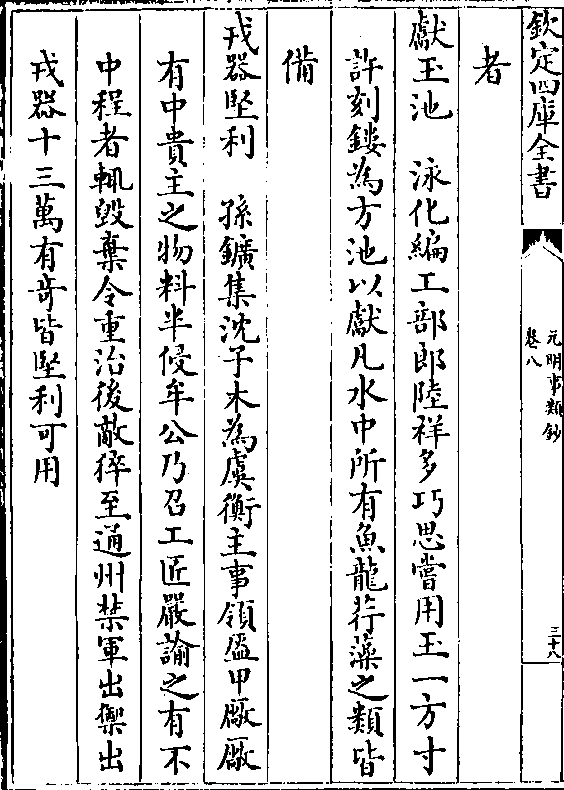 欽定四庫全書
元明事類鈔
卷八
三十八
者
獻玉池　泳化編工部郎陸祥多巧思嘗用玉一方寸
許刻鏤為方池以獻凡水中所有魚龍荇藻之類皆
備
戎器堅利　孫鑛集沈子木為虞衡主事領盔甲廠廠
有中貴主之物料半侵牟公乃召工匠嚴諭之有不
中程者輒毀棄令重治後敵猝至通州禁軍出禦出
戎器十三萬有奇皆堅利可用